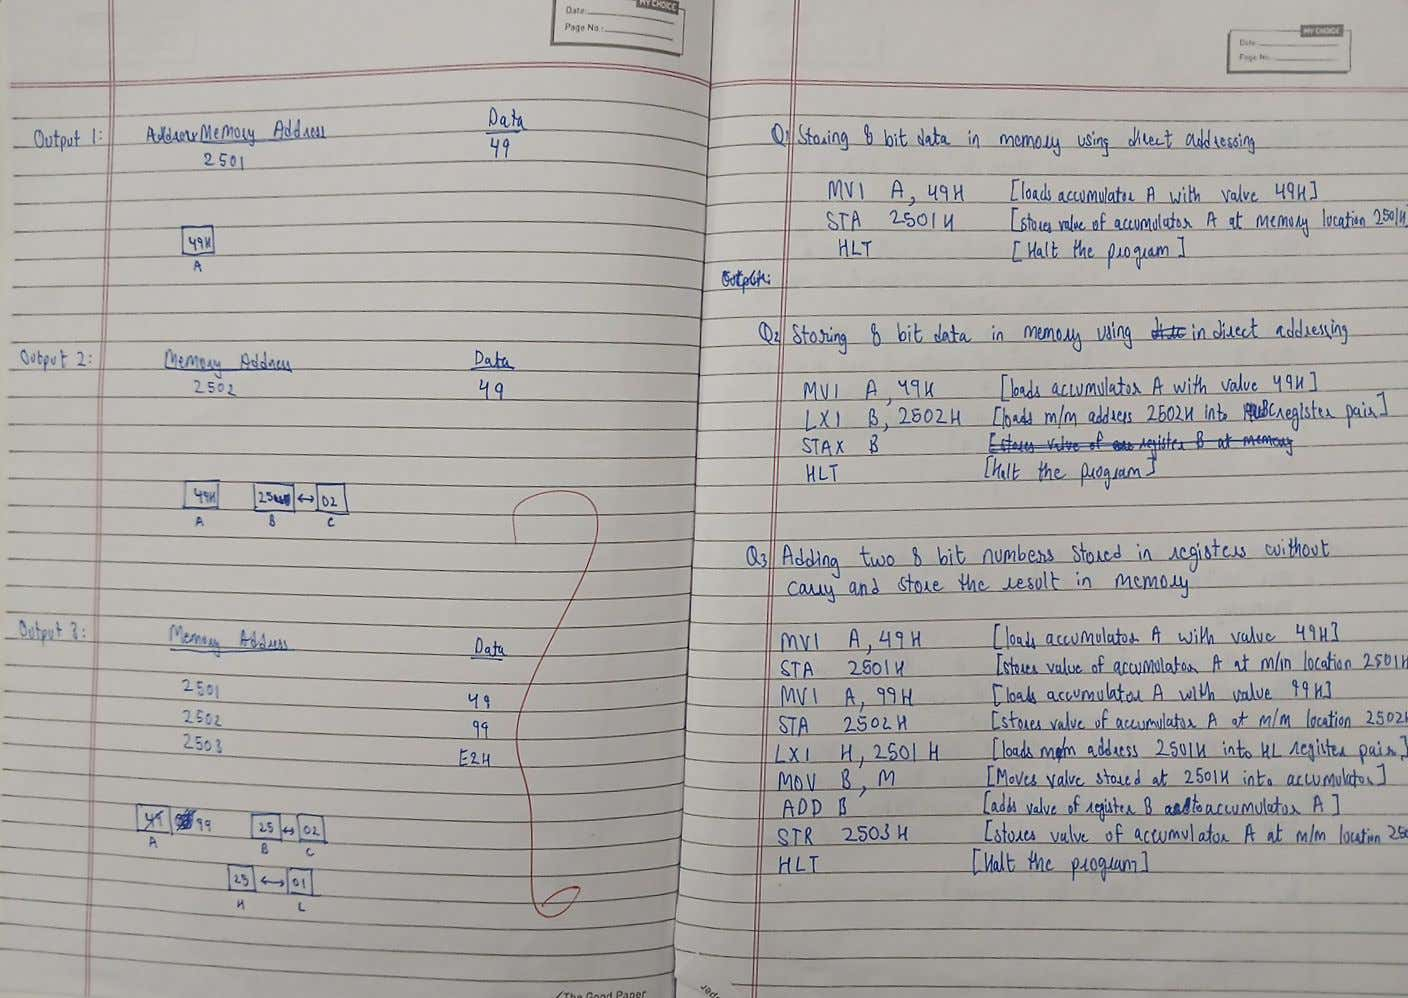 MY CHOICE
Date:
Page No.:
Output 1: Memory Address Data
2501 49
49H
A
Output 2: Memory Address Data
2502 49
49H 25 ↔ 02
A B C
Output 3: Memory Address Data
2501 49
2502 99
2503 E2H
49 99 25 ↔ 02
A B C
25 ↔ 01
H L
(The Good Paper
MY CHOICE
Date
Page No.
Q1 Storing 8 bit data in memory using direct addressing
MVI A, 49H [loads accumulator A with value 49H]
STA 2501H [stores value of accumulator A at memory location 2501H]
HLT [Halt the program]
Output:
Q2 Storing 8 bit data in memory using in direct addressing
MVI A, 49H [loads accumulator A with value 49H]
LXI B, 2502H [loads m/m address 2502H into BC register pair]
STAX B [stores value of register B at memory
HLT [Halt the program]
Q3 Adding two 8 bit numbers stored in registers without
carry and store the result in memory
MVI A, 49H [loads accumulator A with value 49H]
STA 2501H [stores value of accumulator A at m/m location 2501H
MVI A, 99H [loads accumulator A with value 99H]
STA 2502H [stores value of accumulator A at m/m location 2502H
LXI H, 2501H [loads m/m address 2501H into HL register pair]
MOV B, M [Moves value stored at 2501H into accumulator]
ADD B [adds value of register B to accumulator A]
STR 2503H [stores value of accumulator A at m/m location 250
HLT [Halt the program]